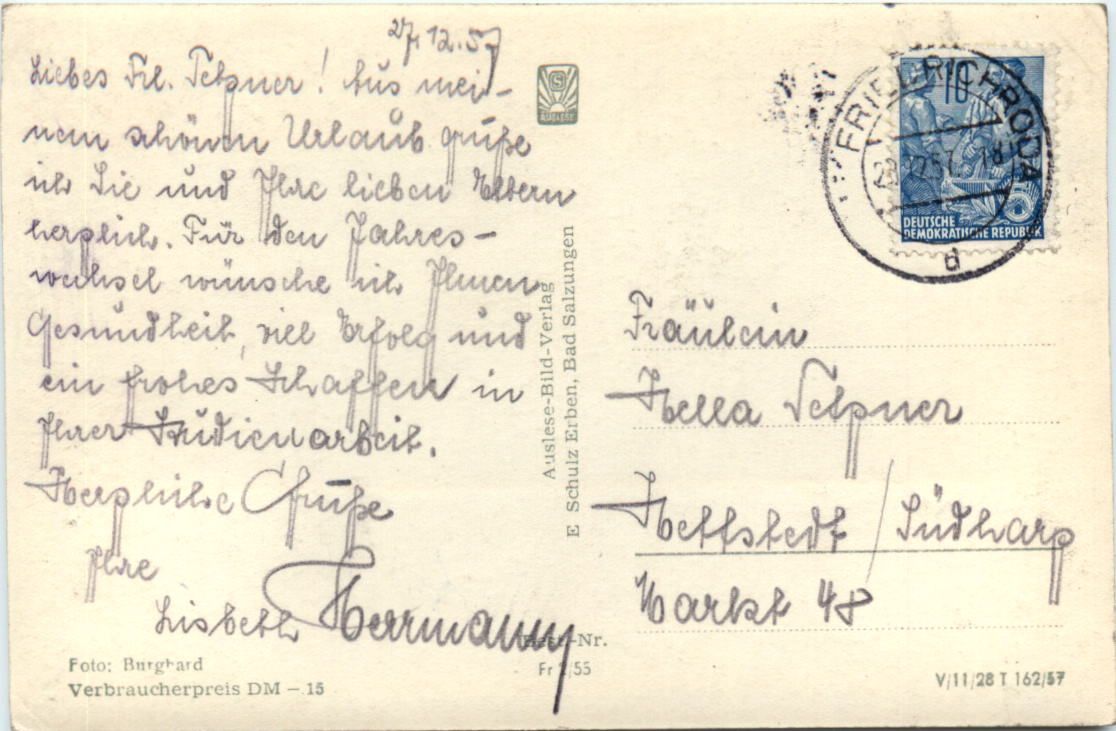 27.12.57
Liebes Frl. Tetzner! Aus mei-
nem schönen Urlaub grüße
ich Sie und Ihre lieben Eltern
herzlich. Für den Jahres-
wechsel wünsche ich Ihnen
Gesundheit, viel Erfolg und
ein frohes Schaffen in
Ihrer Studienarbeit.
Herzliche Grüße
Ihre
Lisbeth Herrmann
Foto: Burghard
Verbraucherpreis DM –.15
AUSLESE
Auslese-Bild-Verlag
E Schulz Erben, Bad Salzungen
Best.-Nr.
Fr 2/55
FRIEDRICHRODA
d
10
DEUTSCHE
DEMOKRATISCHE REPUBLIK
Fräulein
Hella Tetzner
Hettstedt / Südharz
Markt 48
V/11/28 T 162/57